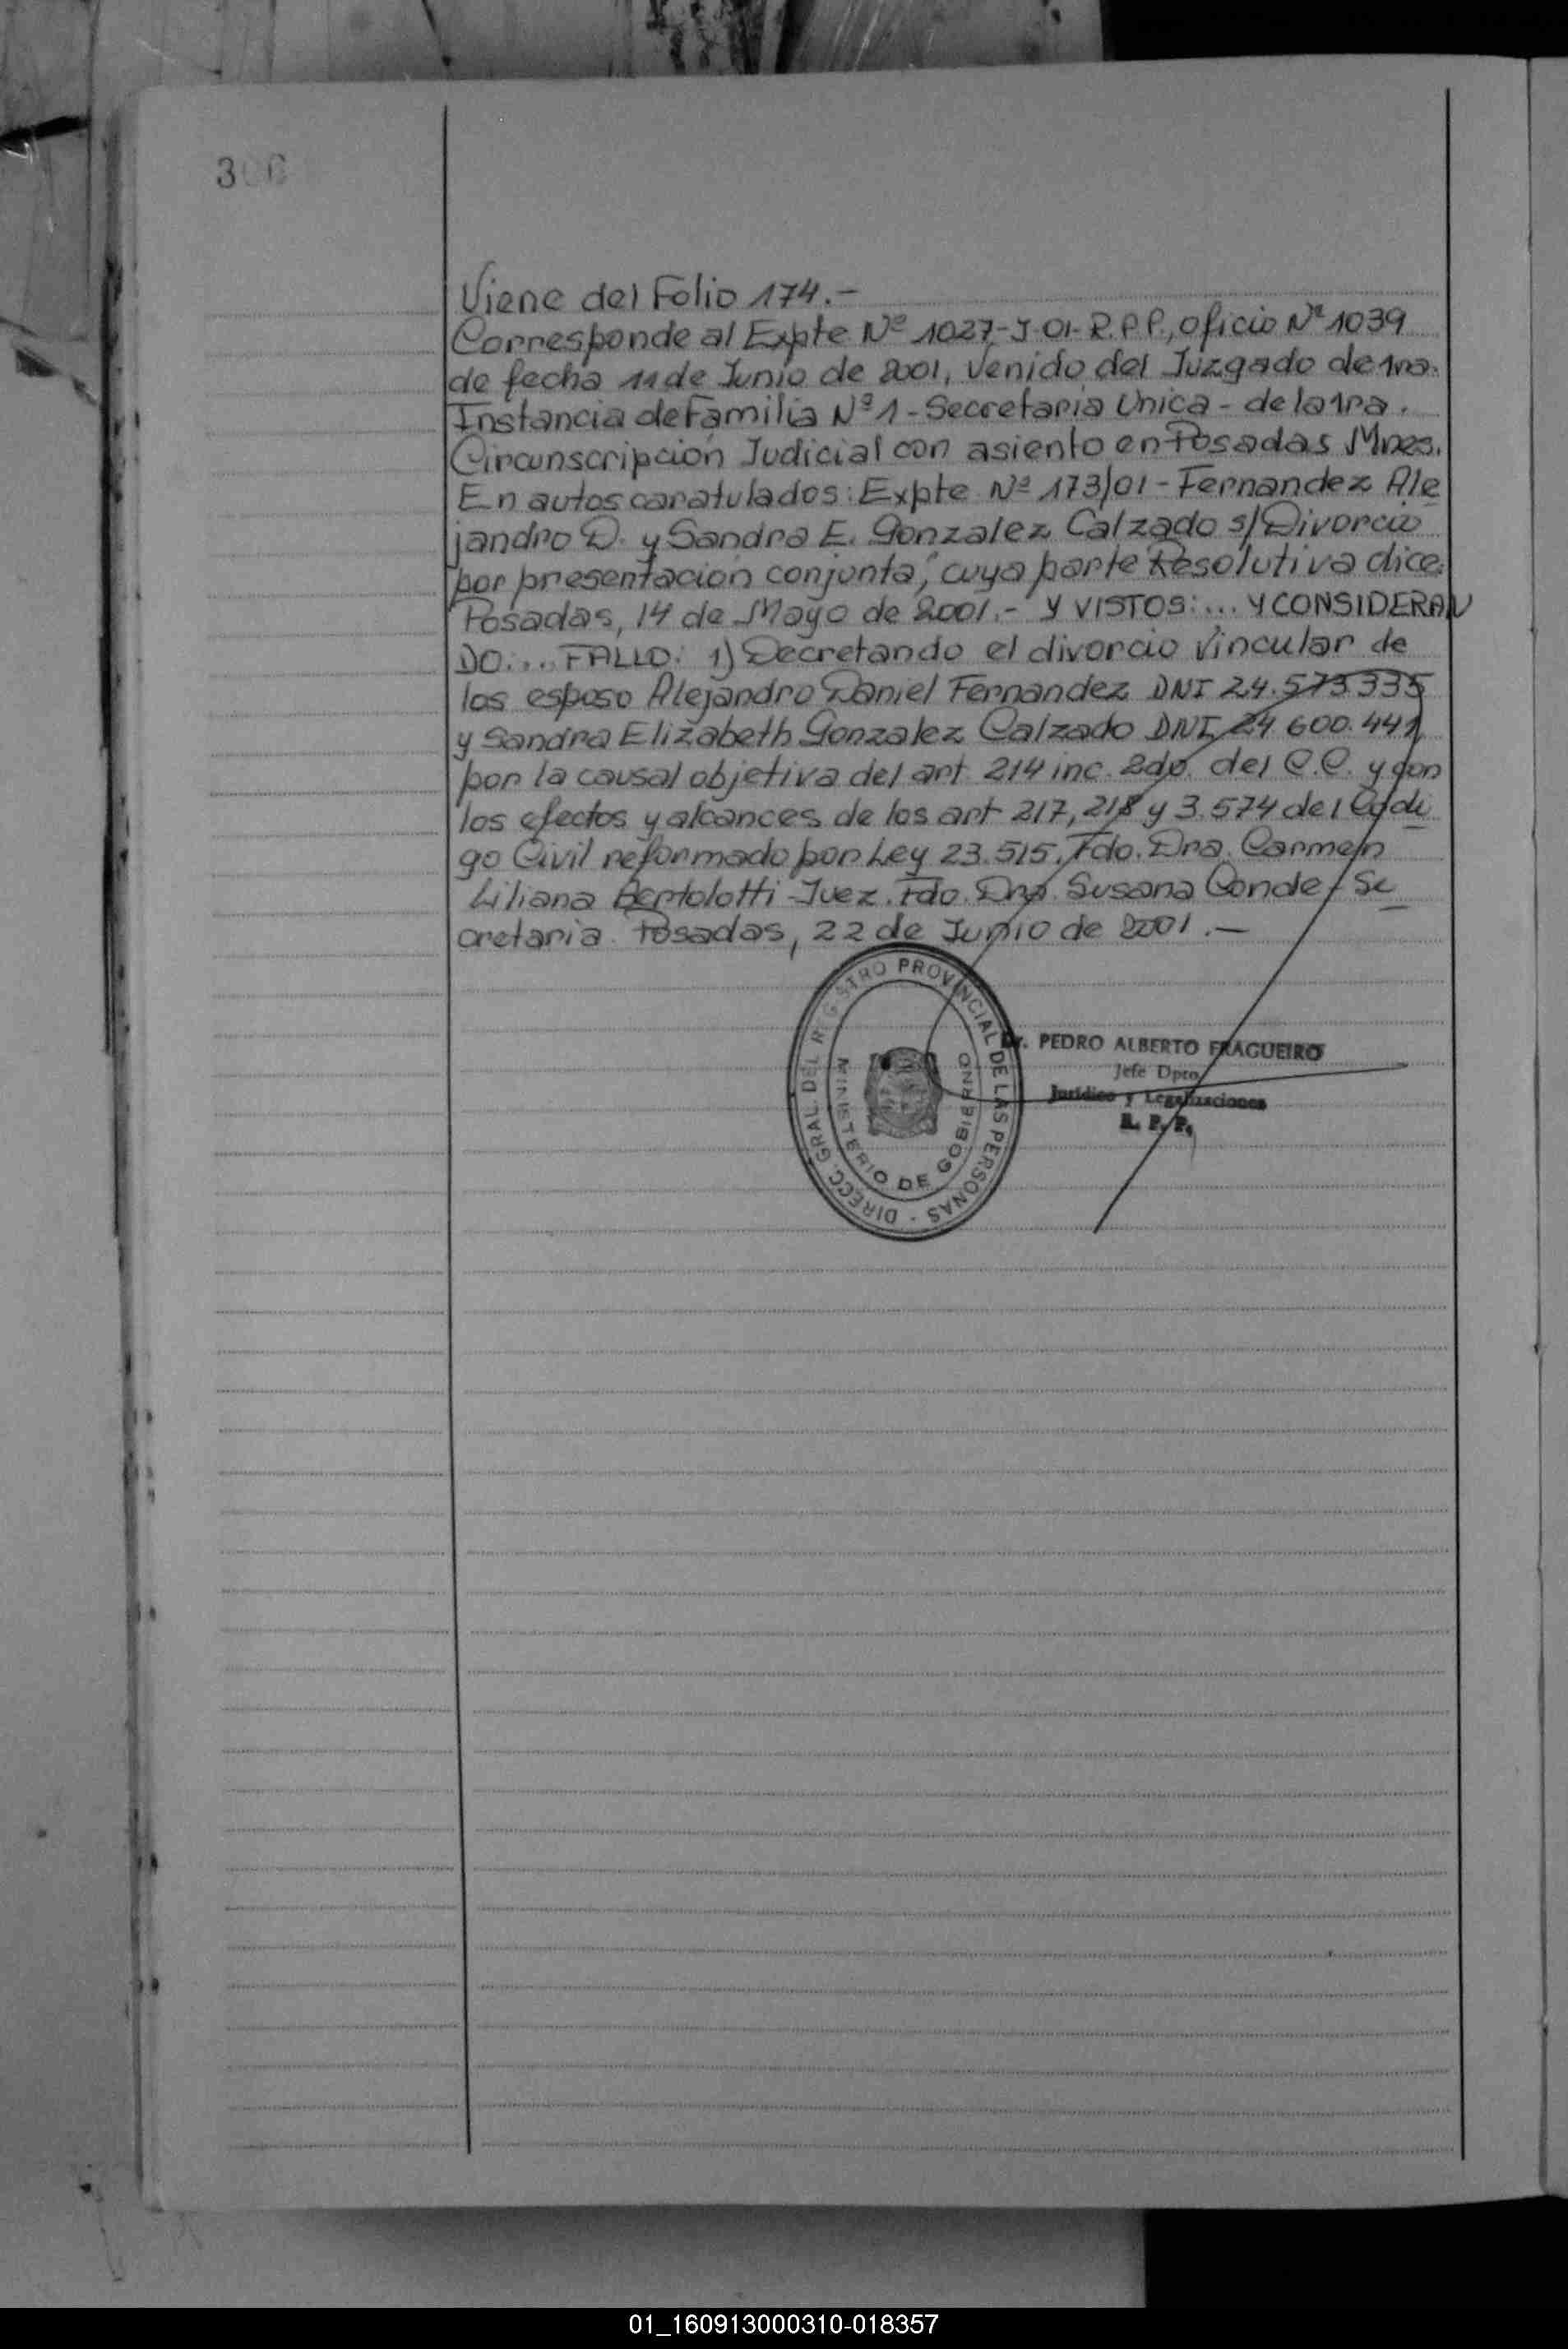 306
Viene del Folio 174.-
Corresponde al Expte Nº 1027-J-01-R.P.P., oficio Nº 1039
de fecha 11 de Junio de 2001, Venido del Juzgado de 1ra.
Instancia de Familia Nº 1 - Secretaria Unica - de la 1ra.
Circunscripción Judicial con asiento en Posadas Mnes.
En autos caratulados: Expte Nº 173/01 - Fernandez Ale
jandro D. y Sandra E. Gonzalez Calzado s/ Divorcio
por presentación conjunta", cuya parte Resolutiva dice:
Posadas, 14 de Mayo de 2001.- Y VISTOS:... Y CONSIDERAN
DO:... FALLO: 1) Decretando el divorcio Vincular de
los esposo Alejandro Daniel Fernandez DNI 24.573.335
y Sandra Elizabeth Gonzalez Calzado DNI 24 600.441
por la causal objetiva del art. 214 inc. 2do. del C.C. y con
los efectos y alcances de los art 217, 218 y 3.574 del Codi
go Civil reformado por Ley 23.515. Fdo. Dra. Carmen
Liliana Bertolotti - Juez. Fdo. Dra. Susana Conde - Se
cretaria. Posadas, 22 de Junio de 2001.-
DIRECC. GRAL. DEL REGISTRO PROVINCIAL DE LAS PERSONAS -
MINISTERIO DE GOBIERNO
Dr. PEDRO ALBERTO FRAGUEIRO
Jefe Dpto.
Jurídico y Legalizaciones
R. P. P.
01_160913000310-018357